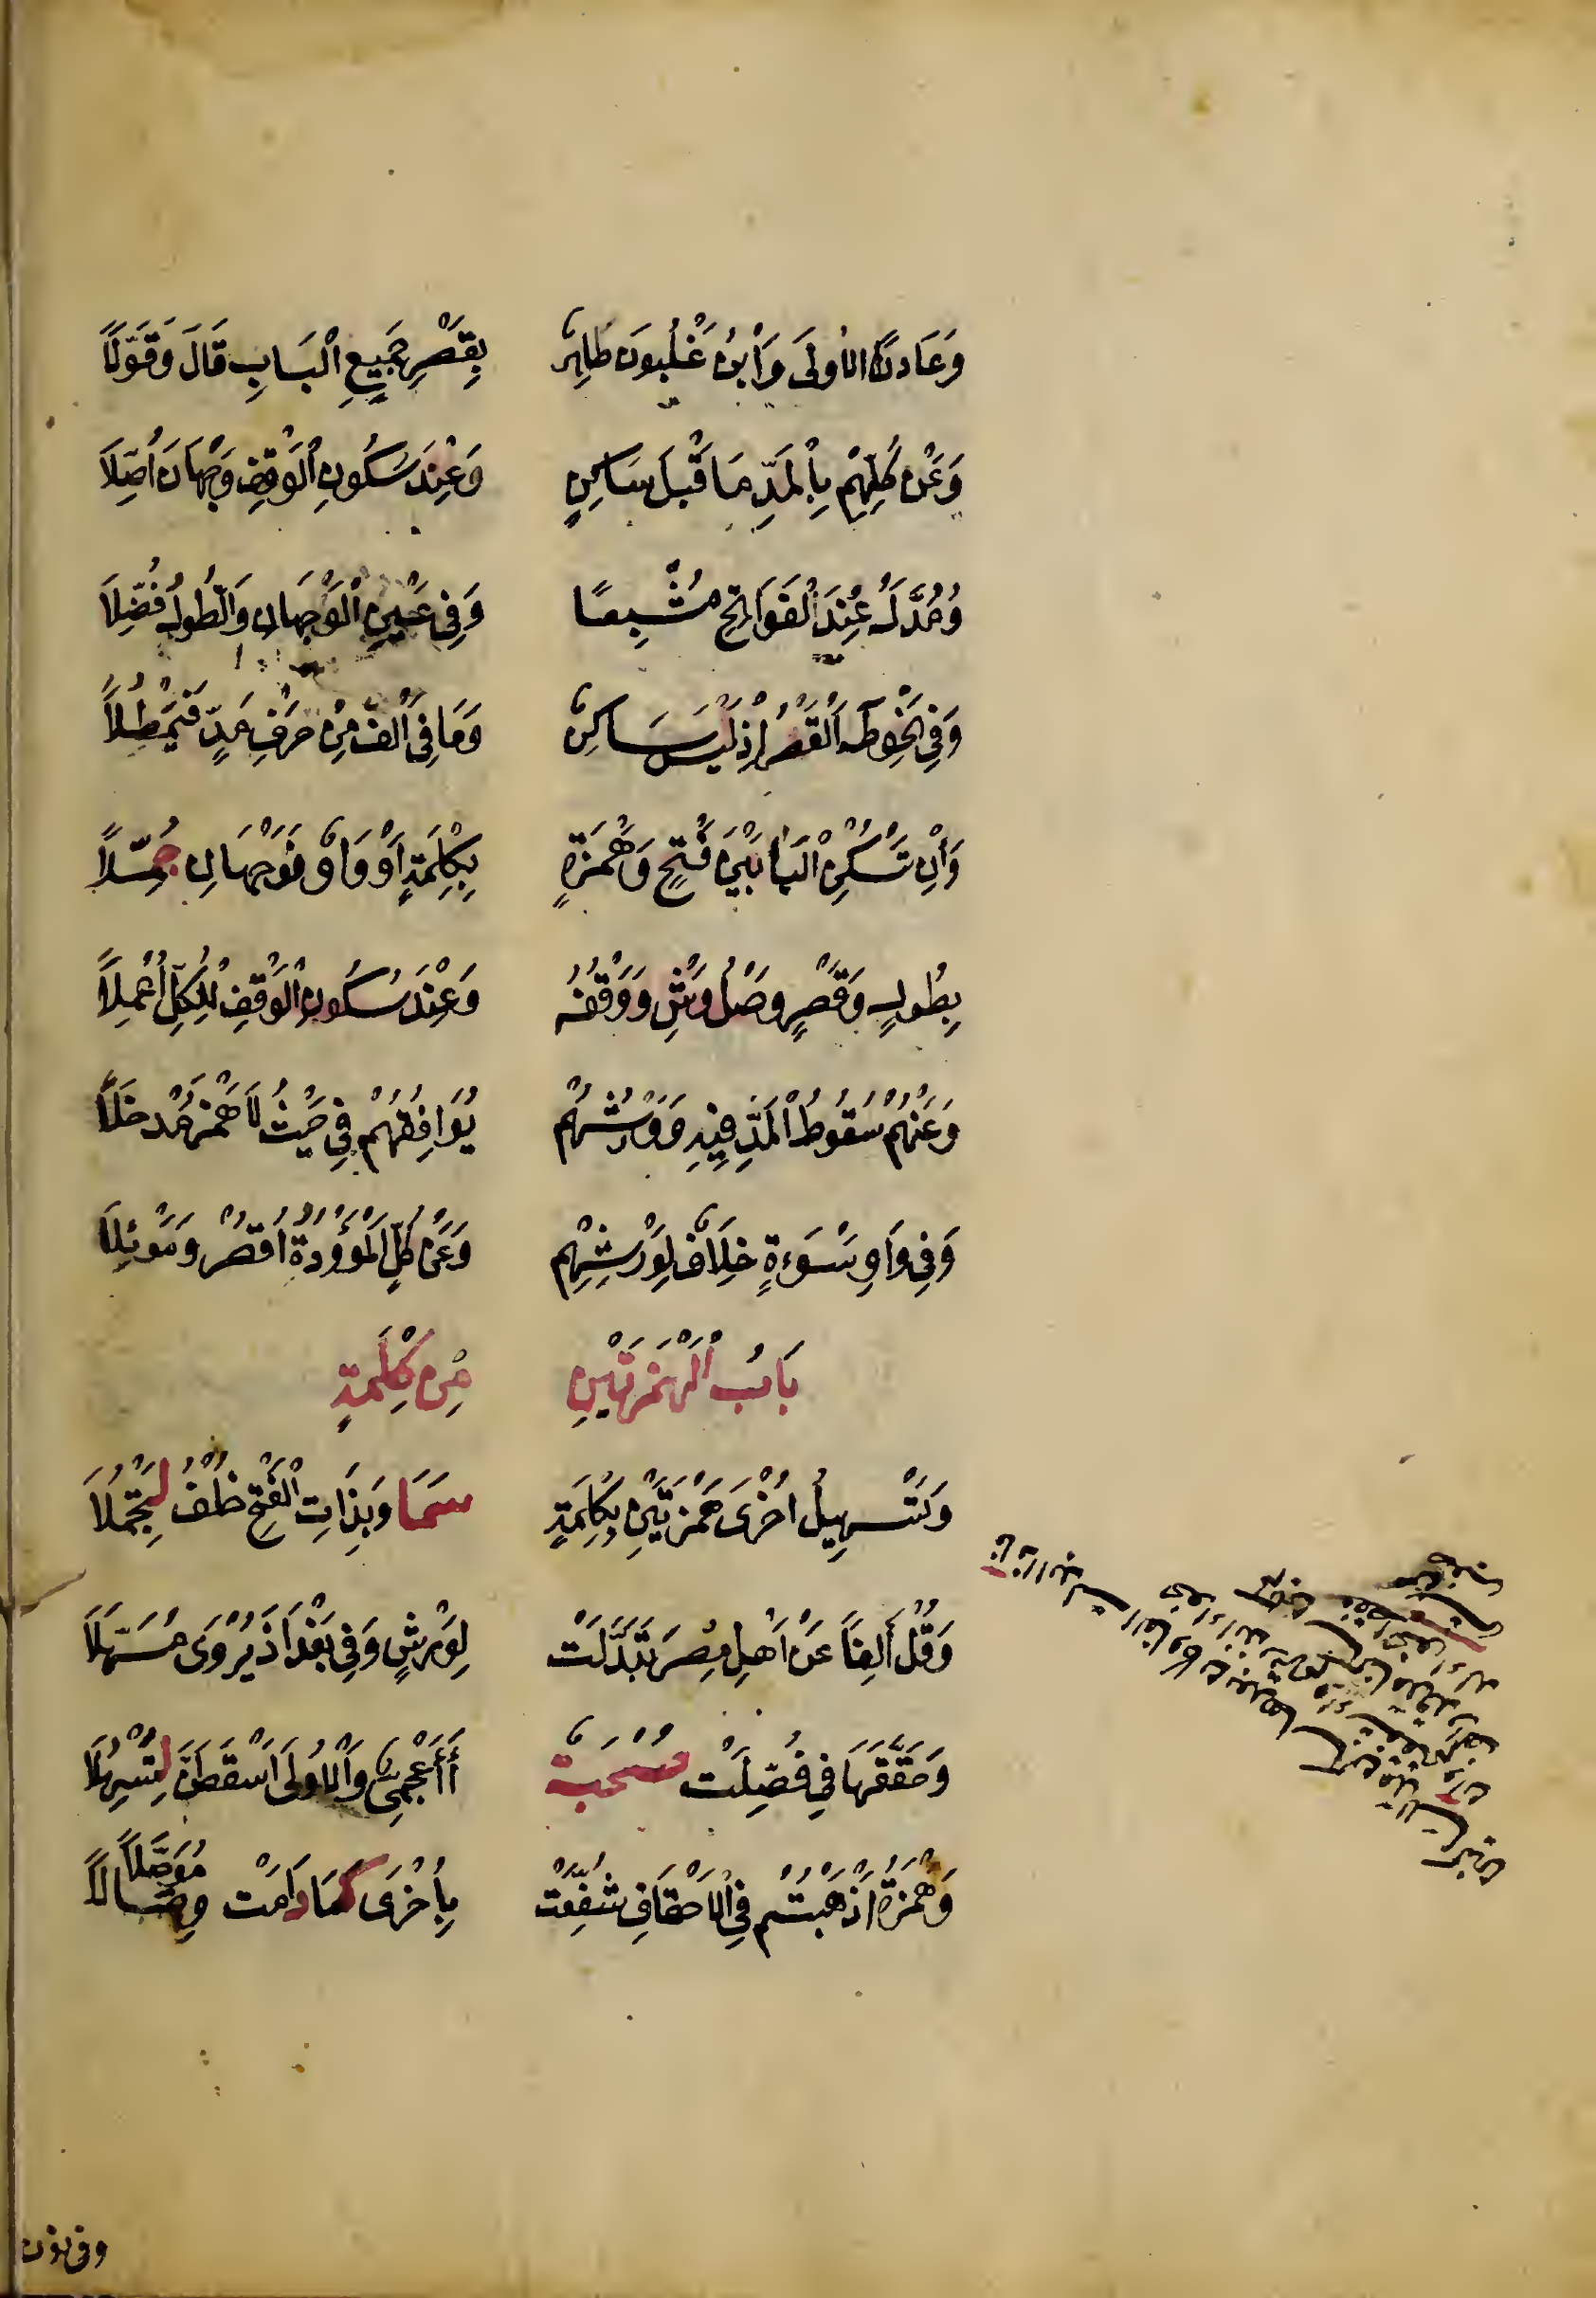 وَعَادَنِ الْاُولَى وَاْبْنُ غَلْبُونَ طَاهِرٌ بِقَصْرِ جَمِيعِ الْبَابِ قَالَ وَقَوَّلَا
وَعَنْ كُلِّهِمْ بِالْمَدِّ مَا قَبْلَ سَاكِنٍ وَعِنْدَ سُكُونِ الْوَقْفِ وَجْهَانِ اُصِّلَا
وَمُدَّ لَهُ عِنْدَ الْفَوَاتِحِ مُشْبِعًا وَفِي عَيْنٍ الْوَجْهَانِ وَالطُّولُ فُضِّلَا
وَفِي نَحْوِ طٰهَ الْقَصْرُ اِذْ لَيْسَ سَاكِنٌ وَمَا فِى اَلِفْ مِنْ حَرْفِ مَدٍّ فَيُمْطَلَا
وَاِنْ تَسْكُنِ الْيَا بَيْنَ فَتْحٍ وَهَمْزَةٍ بِكِلْمَةٍ اَوْ وَاوٌ فَوَجْهَانِ جُمِّلَا
بِطُولٍ وَقَصْرٍ وَصْلُ وَرْشٍ وَوَقْفُهُ وَعِنْدَ سُكُونِ الْوَقْفِ لِلْكُلِّ اُعْمِلَا
وَعَنْهُمْ سُقُوطُ الْمَدِّ فِيهِ وَوَرْشُهُمْ يُوَافِقُهُمْ فِي حَيْثُ لَا هَمْزَ مُدْخَلَا
وَفِي وَاوِ سَوْءٰةٍ خِلَافٌ لِوَرْشِهِمْ وَعَنْ كُلٍّ الْمَوْؤُدَةُ اقْصُرْ وَمَوْئِلَا
بَابُ الْهَمْزَتَيْنِ مِنْ كِلْمَةٍ
وَتَسْهِيلُ اُخْرَى هَمْزَتَيْنِ بِكِلْمَةٍ سَمَا وَبِذَاتِ الْفَتْحِ خُلْفٌ لِتَجْمُلَا
وَقُلْ أَلِفًا عَنْ اَهْلِ مِصْرَ تَبَدَّلَتْ لِوَرْشٍ وَفِي بَغْدَاذَ يُرْوَى مُسَهَّلَا
وَحَقَّقَهَا فِي فُصِّلَتْ صُحْبَةٌ أَأَعْجَمِىٌّ وَالْاُولَى اَسْقِطَنَّ لِتُسْهِلَا
وَهَمْزَةُ اَذْهَبْتُمْ فِي الْاَحْقَافِ شُفِّعَتْ بِأُخْرَى كَمَا دَامَتْ وِصَالًا مُوَصَّلًا
وفي نون